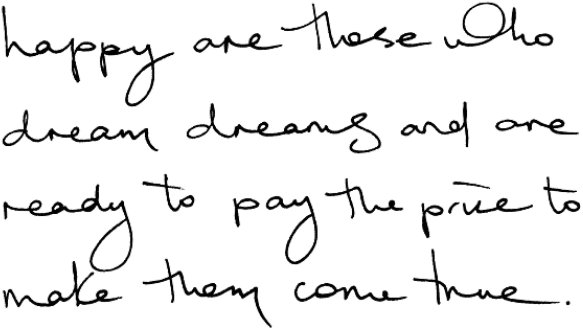 happy are those who
dream dreams and are
ready to pay the price to
make them come true.